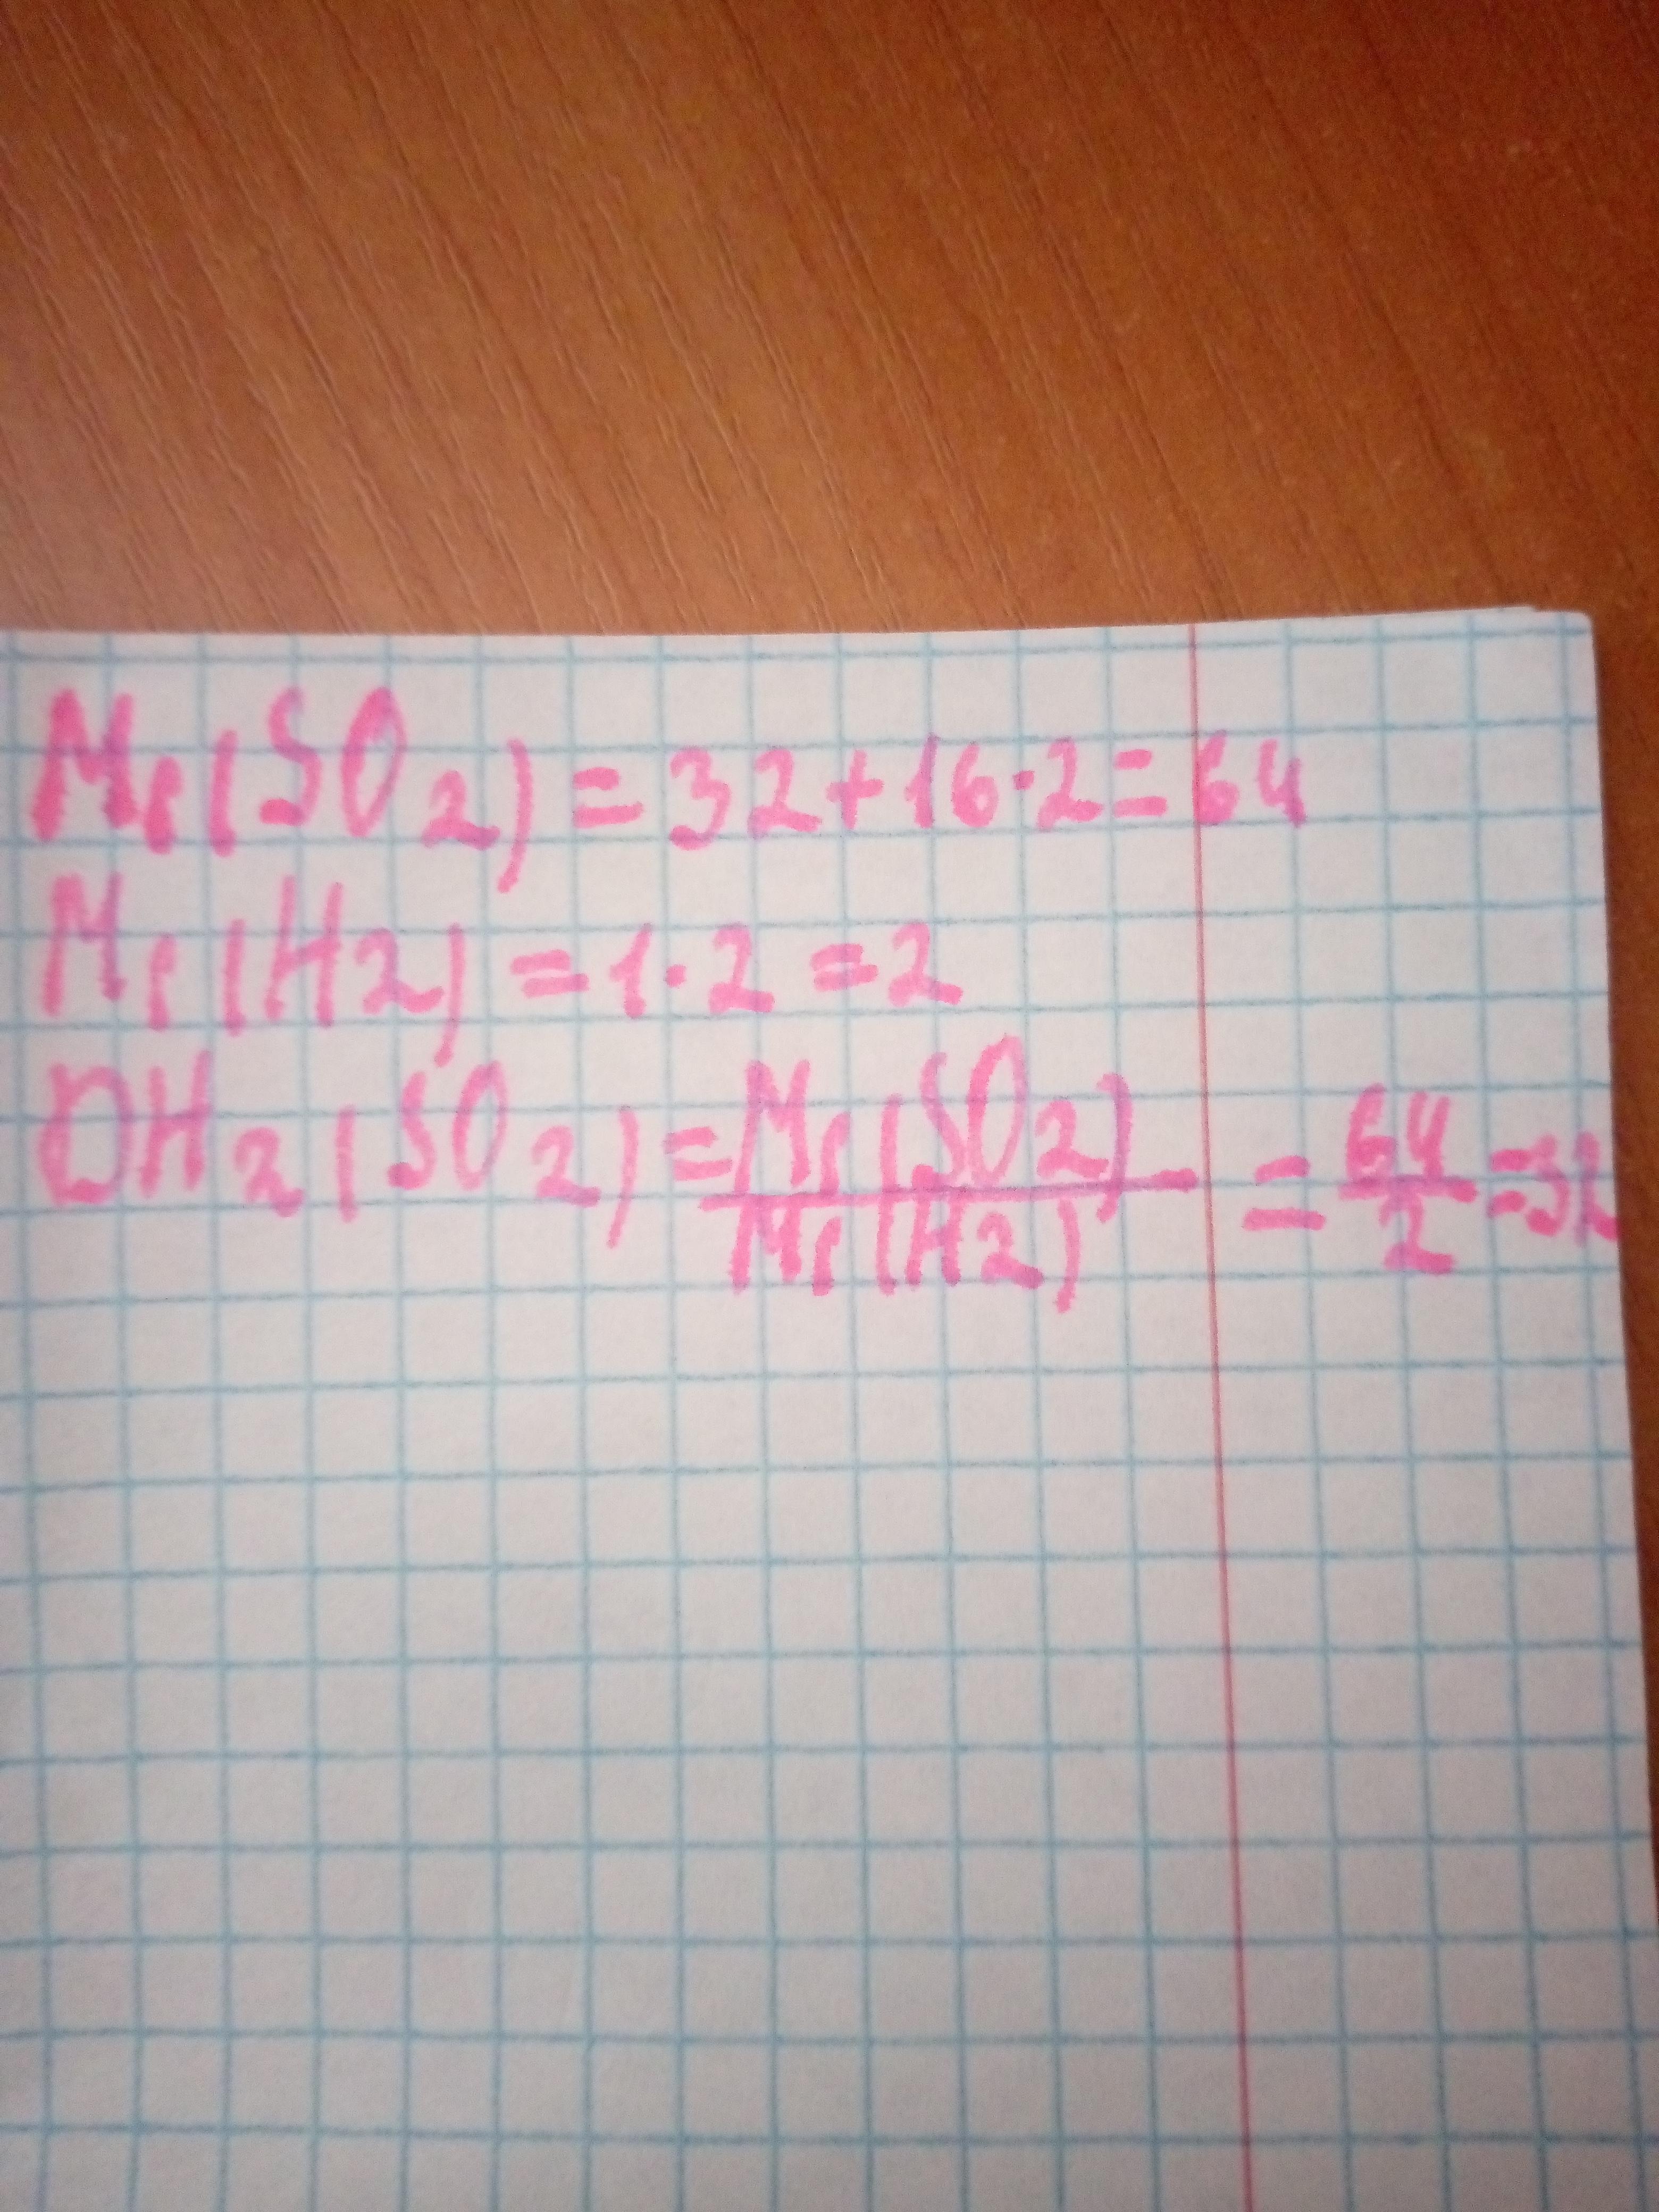 Mr(SO2) = 32+16·2=64
Mr(H2) = 1·2 = 2
DH2(SO2) = Mr(SO2) / Mr(H2) = 64/2 = 32